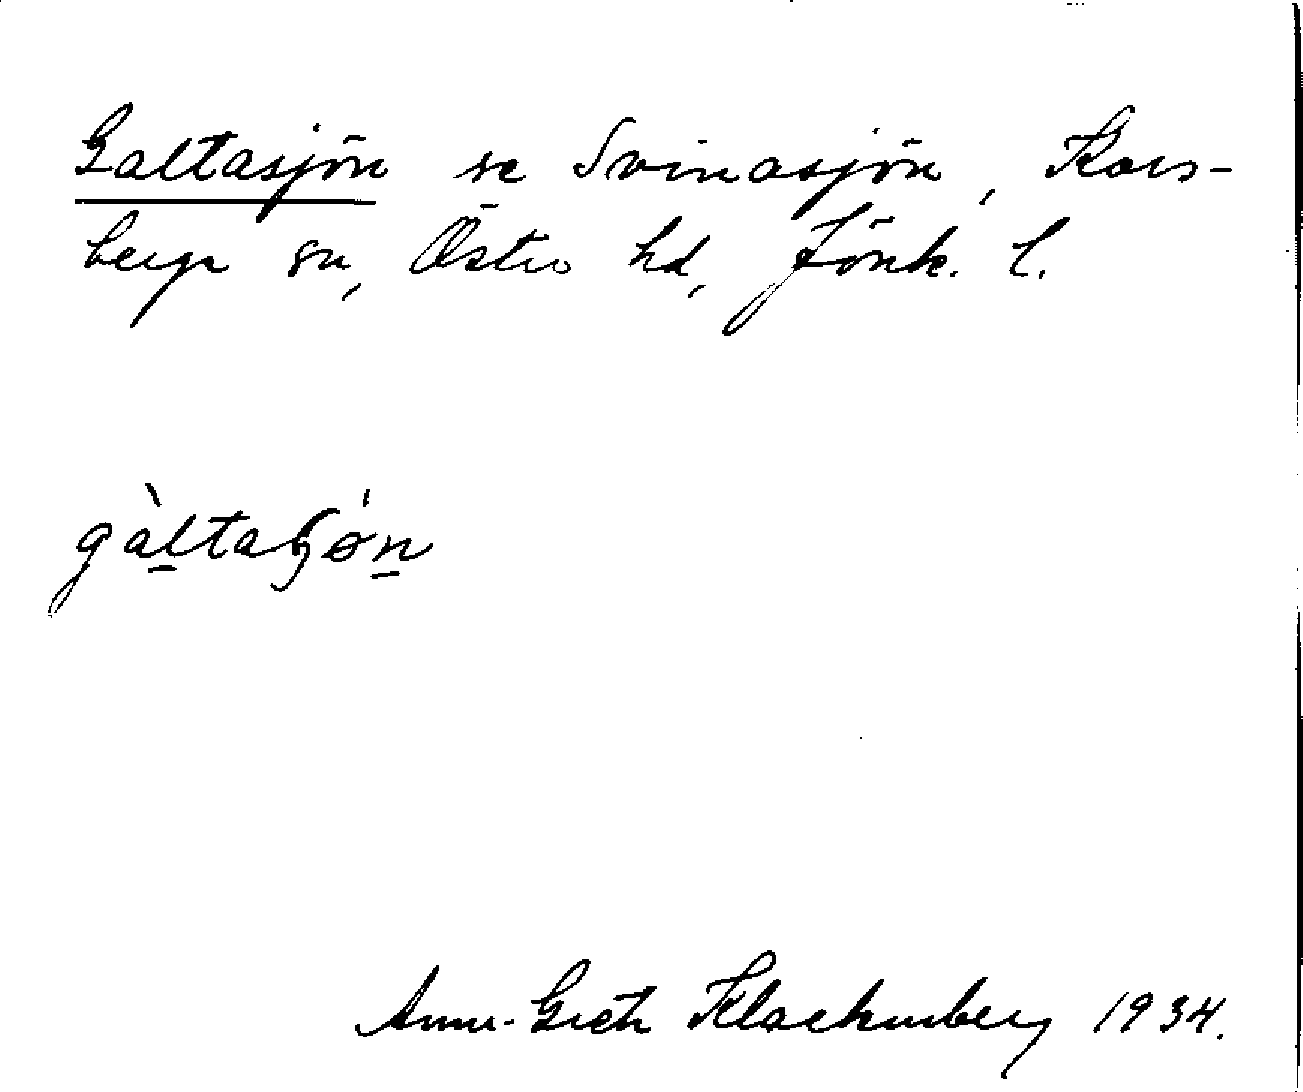 Galtasjön se Svinasjön, Kors-
berga sn, Östra hd, Jönk. l.
gàltaʃø̀n
Anna-Greta Klackenberg 1934.